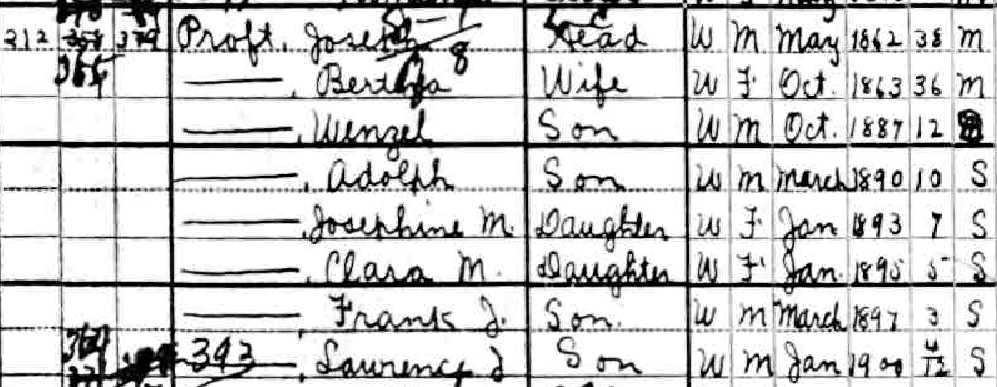 312 379 Proft, Joseph Head W M May 1862 38 M
365 ——, Bertha Wife W F Oct. 1863 36 M
——, Wenzel Son W M Oct. 1887 12
——, Adolph Son W M March 1890 10 S
——, Josephine M. Daughter W F Jan 1893 7 S
——, Clara M. Daughter W F Jan. 1895 5 S
——, Frank J. Son. W M March 1897 3 S
393 ——, Lawrence J Son W M Jan 1900 4/12 S